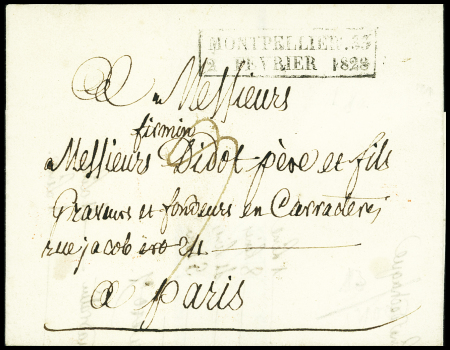 MONTPELLIER. 33
2 FÉVRIER 1828
A Messieurs
firmin
Messieurs Didot père et fils
Graveurs et fondeurs en Carracteres
rue jacob nro 24
a paris